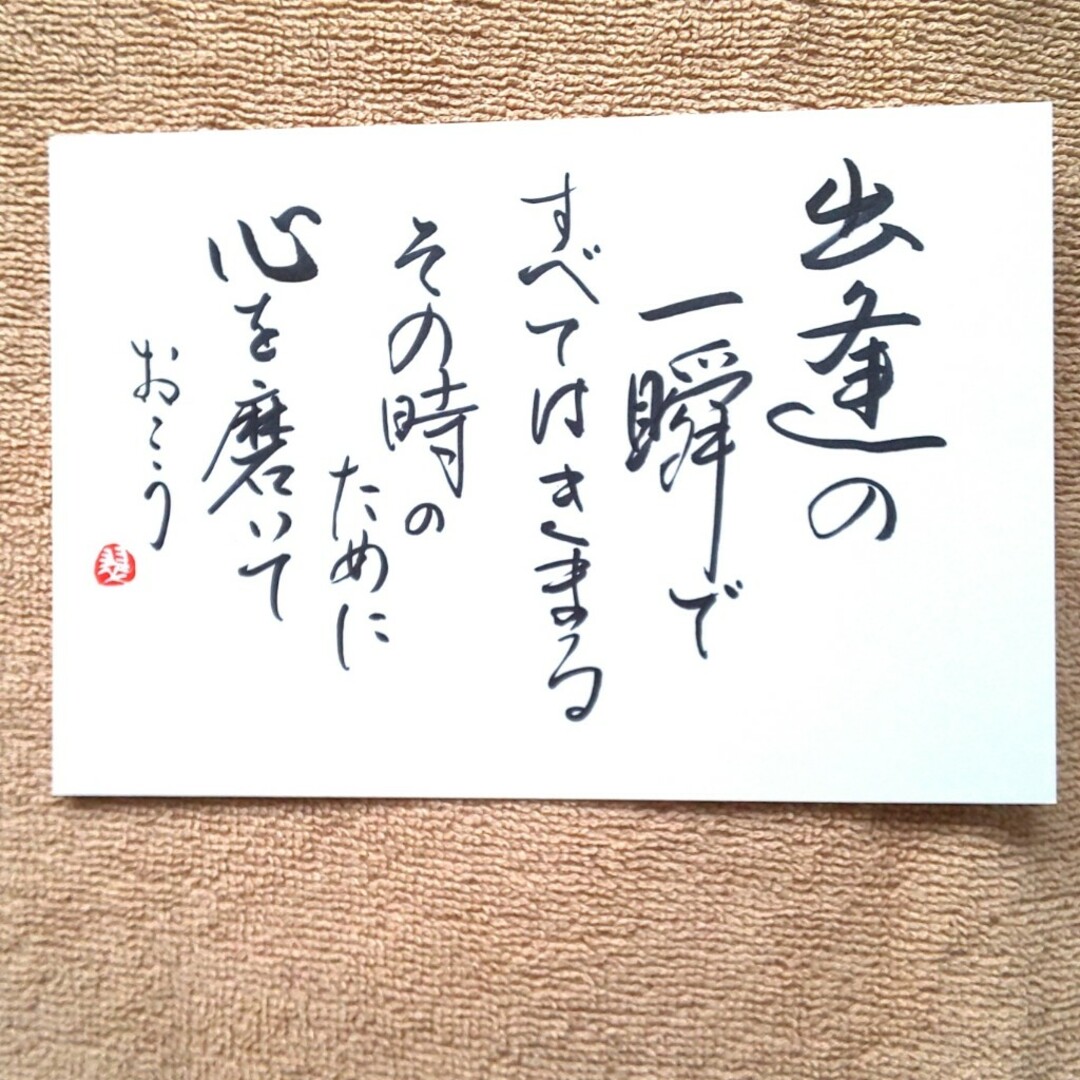 出逢の
一瞬で
すべてはきまる
その時の
ために
心を磨いて
おこう